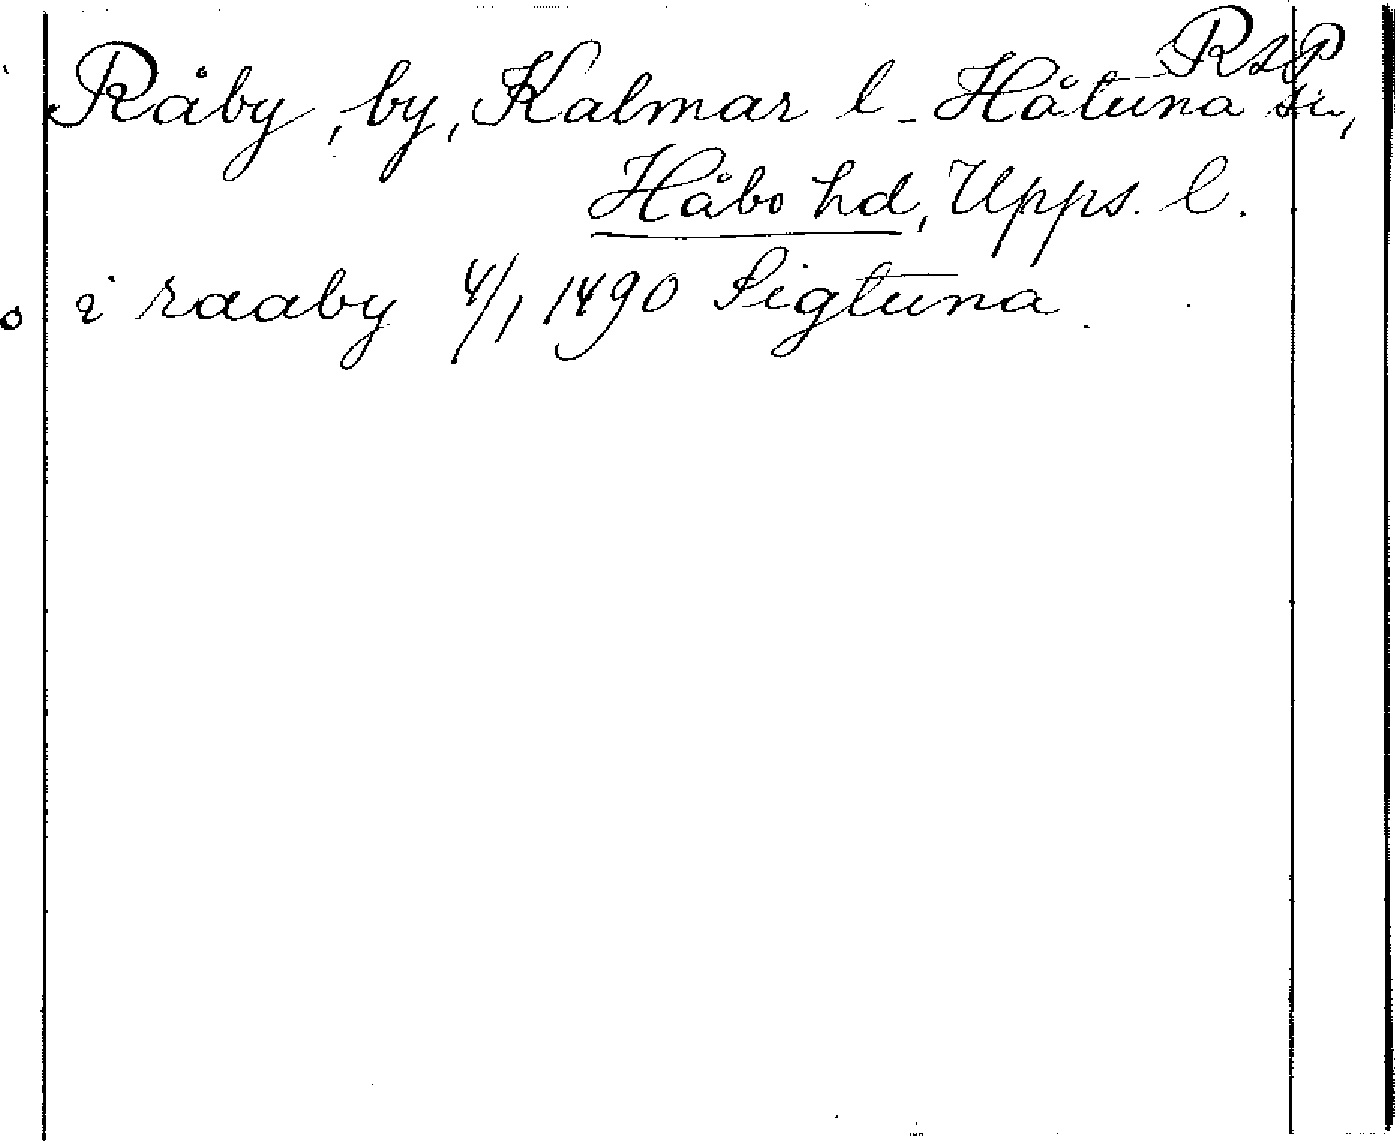 RSP
Råby, by, Kalmar l - Håtuna sn,
Håbo hd, Upps. l.
i raaby 4/1 1490 Sigtuna.